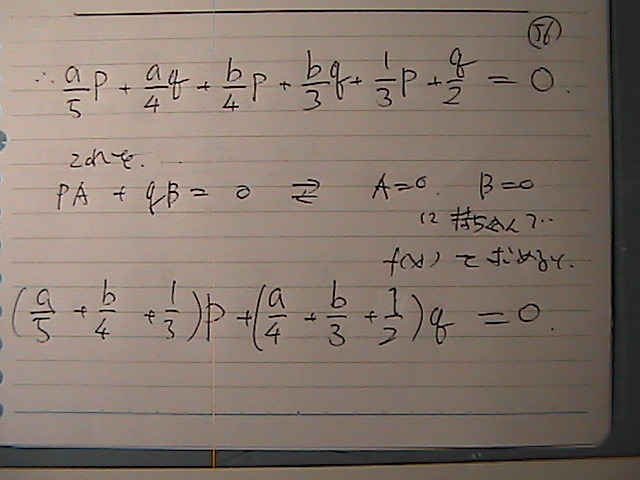 56
∴ a/5 p + a/4 q + b/4 p + b/3 q + 1/3 p + q/2 = 0.
これを.
pA + qB = 0 ⇄ A=0. B=0
に持ちこんで..
f(x) を求めるよ.
(a/5 + b/4 + 1/3)p + (a/4 + b/3 + 1/2)q = 0.